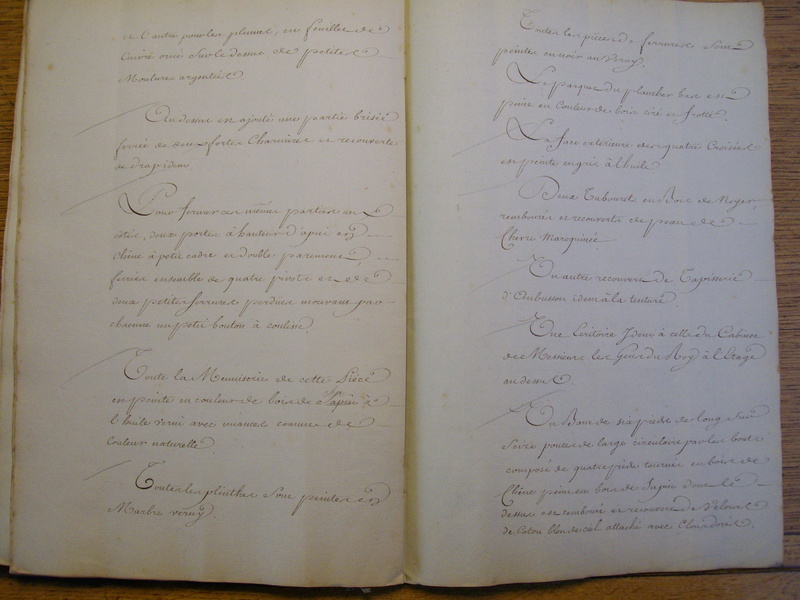 et l'autre pour les plumes, en feuilles de
Cuivre orné sur le dessus de petites
Moulures argentées
Au dessus est ajusté une partie brisée
ferrée de deux fortes Charnières et recouverte
de drap idem
Pour fermer ces mêmes parties un
côté, deux portes à hauteur d'apui en
Chêne à petit cadre en double parement
ferrées ensemble de quatre pivots et de
deux petites serrures perdues mouvant par
chacune un petit bouton à coulisse.
Toute la Menuiserie de cette Pièce
est peinte en couleur de bois de Sapin à
l'huile verni avec nuances comme de
Couleur naturelle
Toutes les plinthes sont peintes en
Marbre verny.
Toutes les pièces de ferrures sont
peintes en noir au verny.
Le parquet du plancher bas est
peint en Couleur de bois ciré et frotté
La face extérieure des quatre Croisées
est peinte en gris à l'huile
Deux Tabourets en Bois de Noyer
rembourés et recouverts de peau de
Chèvre Maroquinée
Un autre recouvert de Tapisserie
d'Aubusson idem à la tenture
Une Ecritoire Idem à celle du Cabinet
de Messieurs les Gens du Roy à l'étage
au dessus
Un Banc de six pieds de long sur
Seize pouces de large circulaire par les bouts
composé de quatre pieds tournés en bois de
Chêne peint en bois de Sapin dont le
dessus est rembouré et recouvert de Velours
de Coton bleu de ciel attaché avec Clous dorés.